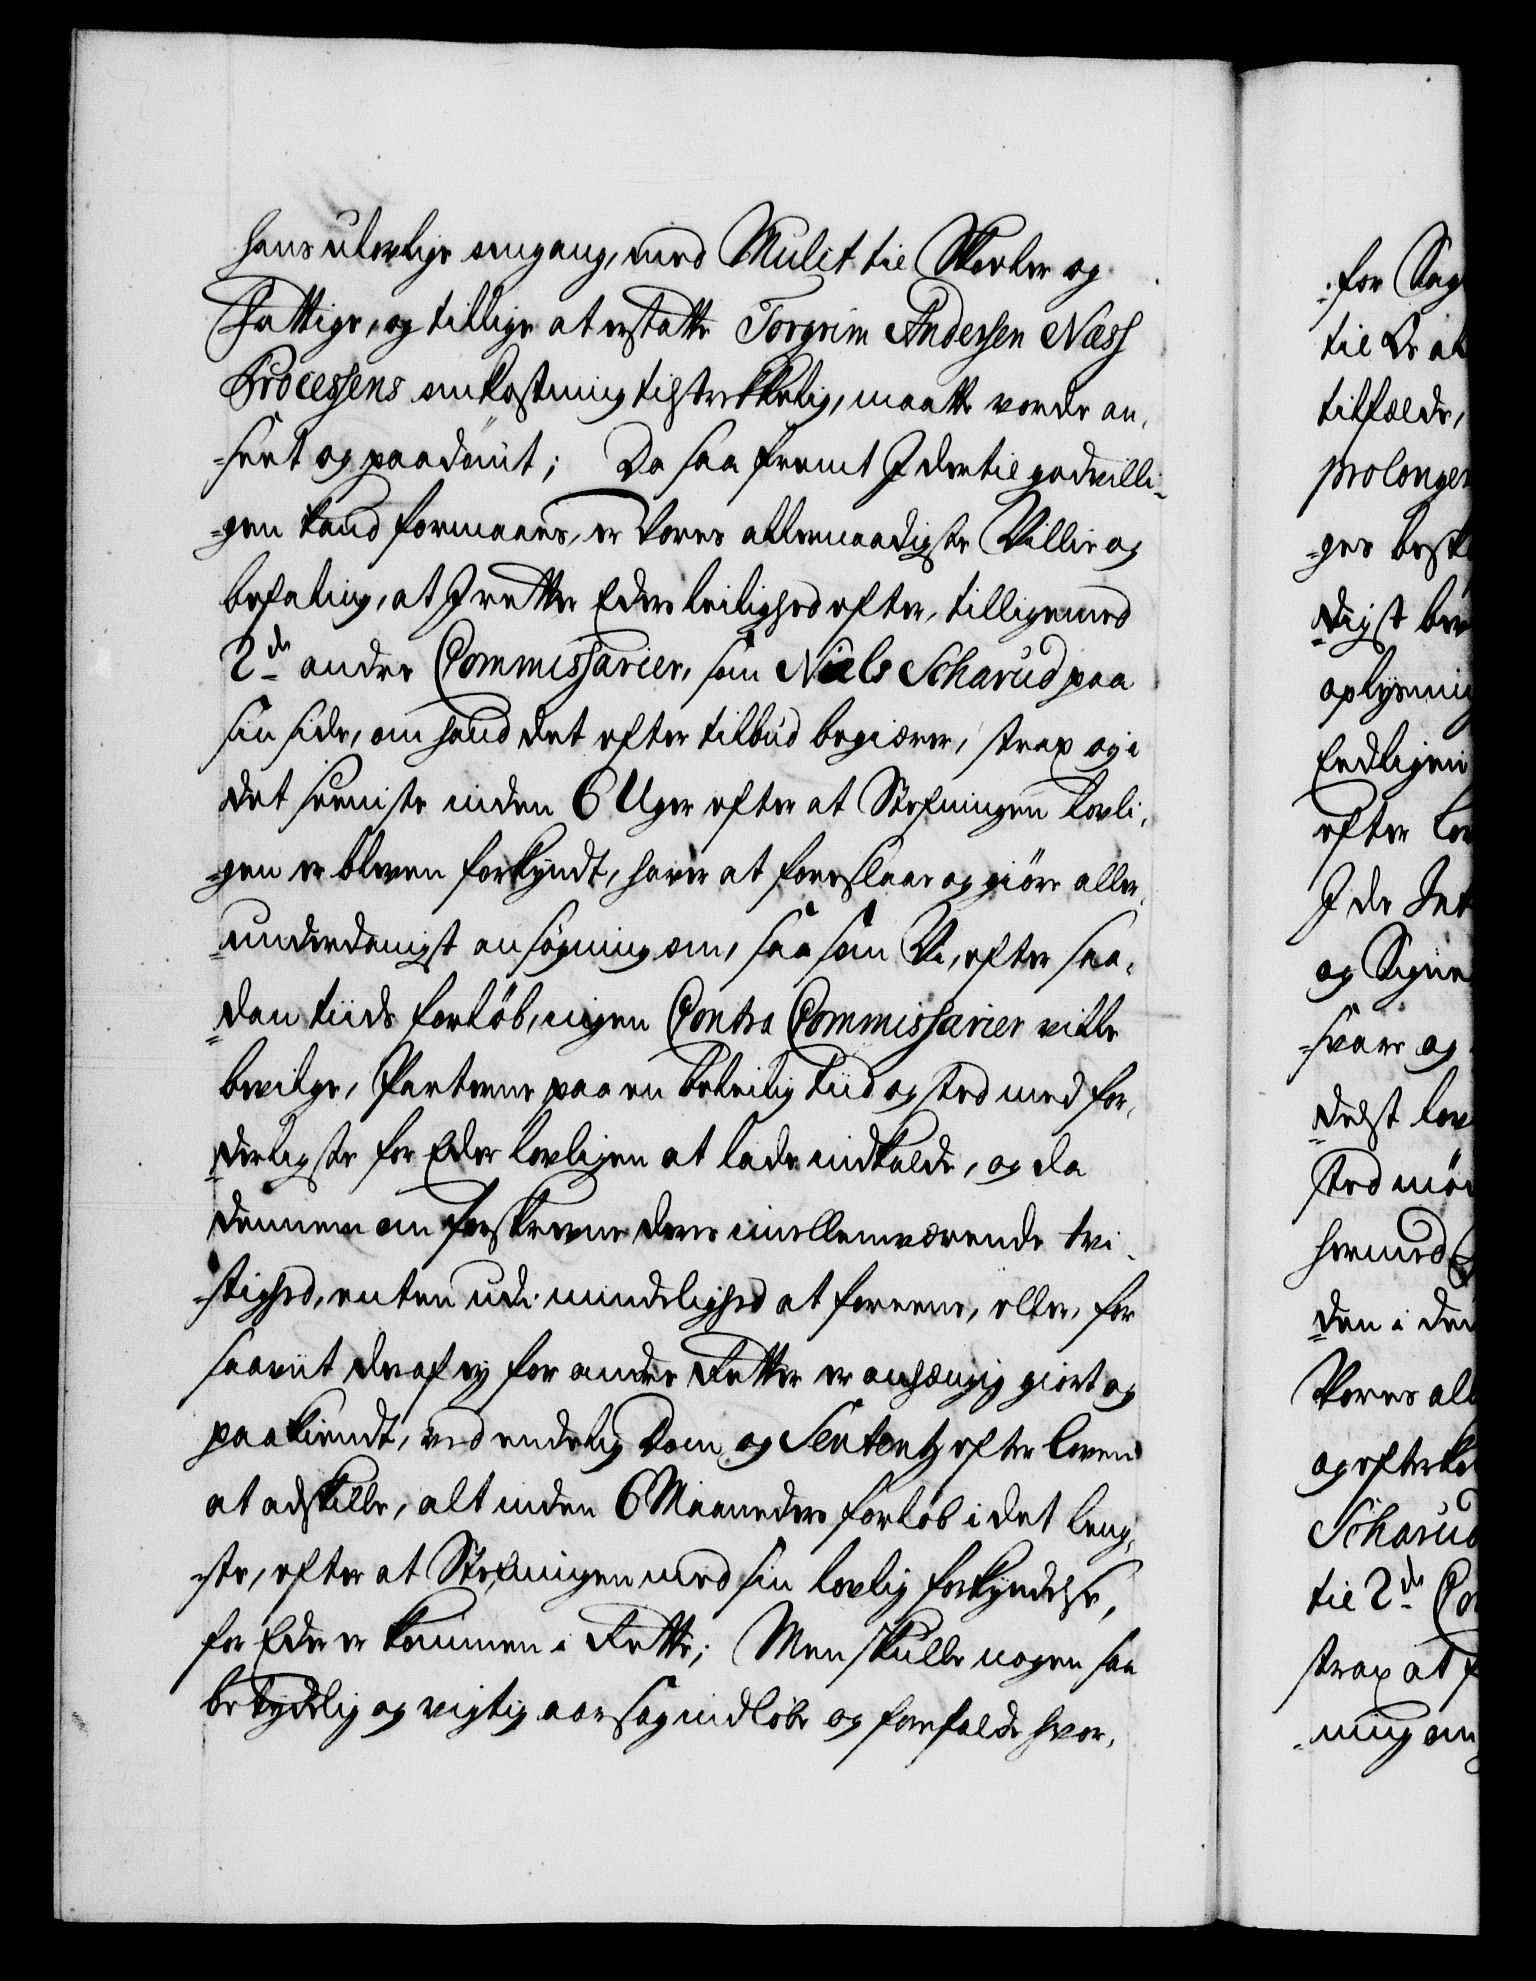 hans ulovlige omgang, med Mulct til Skoeler og
Fattige, og tillige at erstatte Torgrim Andersen Næss
Processens omkostning tilstrekkelig, maatte vorde an,
=seet og paadömt; Da saa fremt I dertil godvilli,
=gen kand formaaes, er Vores allernaadigste Villie og
befaling, at I retter Eders leilighed efter, tilligemed
2de andre Commissarier, som Niels Scharud paa
sin side, om hand det efter tilbud begiærer, strax og i
det seeniste inden 6 Uger efter at Stefningen lovli,
=gen er bleven forkyndt, haver at foreslaae og giöre aller,
=underdanigst ansögning om, saa som Vi, efter saa,
=dan tiids forlöb, ingen Contra Commissarier ville
bevilge, Parterne paa en beleilig tiid og sted med for,
=derligste for Eder lovligen at lade indkalde, og da
dennem om forskrevne deres imellemværende tvi,
=stighed, enten udi mindelighed at foreene, eller, for
saaviit deraf ey for andre Retter er anhængig giort og
paakiendt, ved endelig Dom og Sententz efter loven
at adskille, alt inden 6 Maaneders forlöb i det leng,
=ste, efter at Stefningen med sin lovlig forkyndelse,
for Eder er kommen i Rette; Men skulle nogen saa
betydelig og vigtig aarsag indlöbe og forefalde hvor,
=for Sag
til
tilfælde,
prolonger
=ges
=digst
oplysning
Endligen
efter
I de
og
=svare og
=delst lov
sted
hermed
=den i den
Vores all
og
Scharud
til 2de Co
strax at f
=ning om